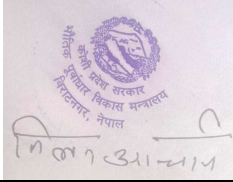 कोशी प्रदेश सरकार
भौतिक पूर्वाधार विकास मन्त्रालय
विराटनगर, नेपाल